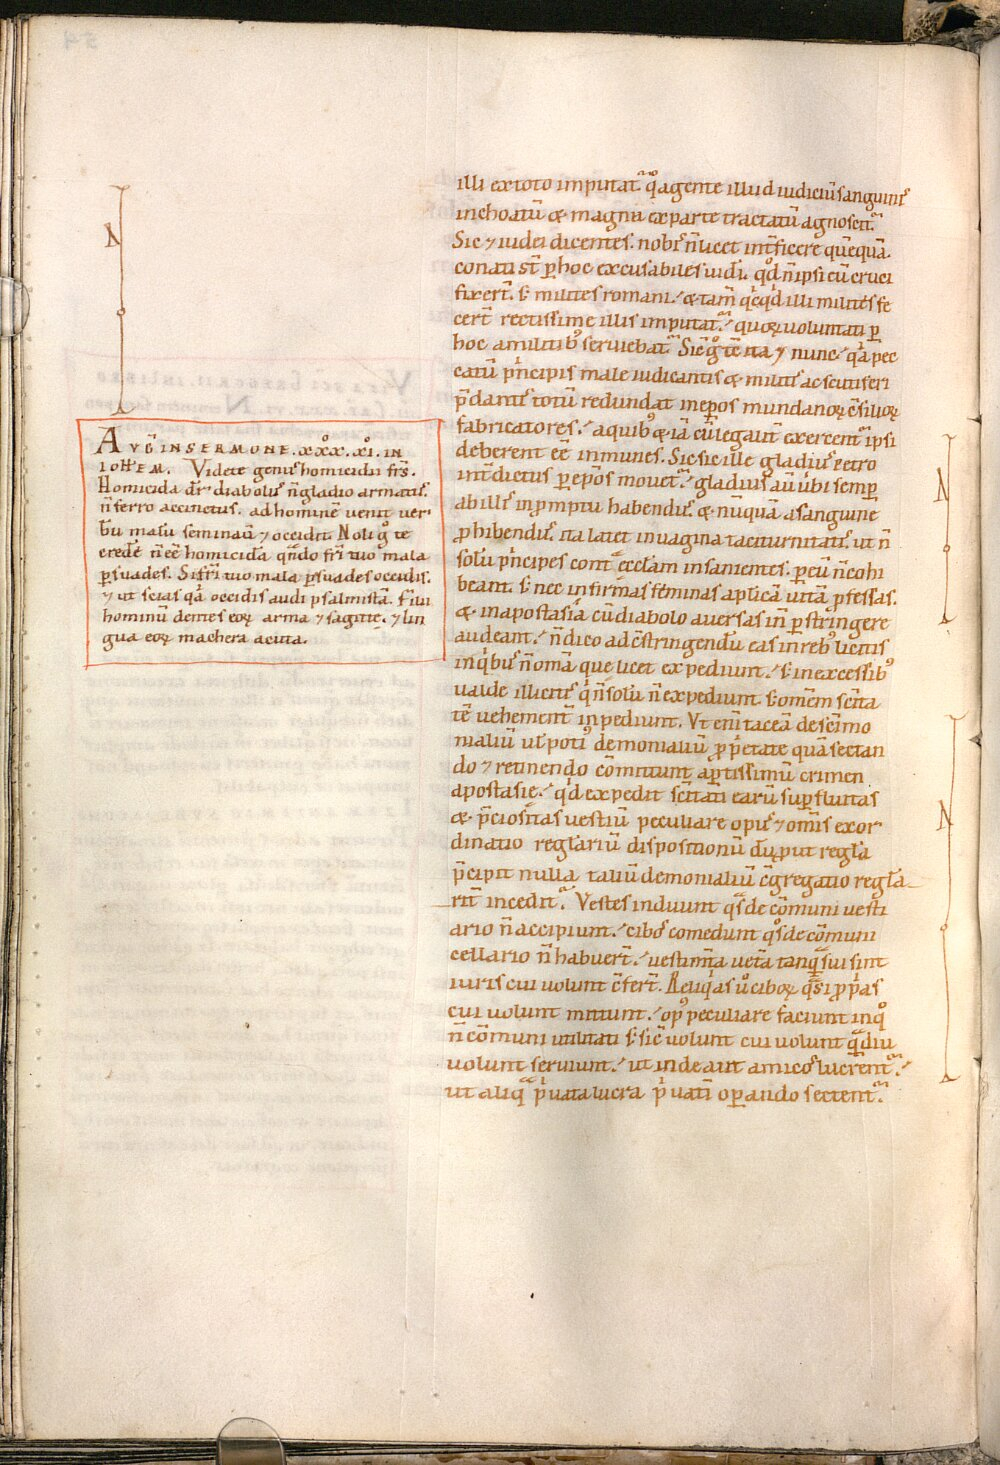 AVḠ IN SERMONE .xxx̊. xi̊. IN
IOHEM. Videte genus homicidii frs̄.
Homicida dr̄ diabolus n̄ gladio armatus.
n̄ ferro accinctus. ad hominē venit ver
bū malū seminauit ⁊ occidit. Noli g̊ te
credē n̄ eē homicidā qn̄do fri tuo mala
p̱suades. Si fri tuo mala p̱suades occidis.
⁊ ut scias qa occidis audi psalmistā. filii
hominū dentes eoꝝ arma ⁊ sagitte. ⁊ lin
gua eoꝝ machera acuta.
illi ex toto imputat̄ qo agente illud iudiciū sanguinis
inchoatū & magna ex parte tractatū agnoscit̄.
Sic ⁊ iudei dicentes. nobis n̄ licet int̄ficere quēquā.
conati st̄ p̱ hoc excusabiles uidi. qd̄ n̄ ipsi eū cruci
fixert̄. s; milites romani. & tam̄ qicqd illi milites fe
cert̄ rectissime illis imputat̄. quoꝝ uoluntati p̱
hoc a militib; seruiebat̄. Sic g̊ tē ita ⁊ nunc. qa pec
catū pncipis male iudicantis & militis ac scutiferi
p̄dantis totū redundat in ep̄os mundanoꝝ c̄silioꝝ
fabricatores. a quib; & iā cū legaūt exercent̄ ipsi
deberent eē inmunes. Sic sic ille gladius retro
int̄dictus p̱ ep̄os mouet̄. gladius aū u̇bi semp̱
ab illis in promptu habendus & nūquā a sanguine
ꝓhibendus. ita latet in uagina taciturnitatis. ut n̄
solū pncipes contᵃ eccl̄am insanientes. p̱ eū n̄ cohi
beant. s; nec infirmas feminas aplicā uitā ꝓfessas.
& in apostasiā cū diabolo auersas in p̱stringere
audeant. n̄ dico ad c̄stringendū eas in reb; licitis
in qib; n̄ om̄a que licet expediunt. s; in excessib;
ualde illicitis qi n̄ solū n̄ expediunt s; om̄em sc̄ita
tē uehement̄ inpediunt. Vt eni taceā de sc̄imo
nialiū ul poti; demonialiū ꝓpietate quā sectan
do ⁊ retinendo cōmittunt ap̱tissimū crimen
apostasie. qd expedit sc̄itati earū sup̱fluitas
& p̄ciositas uestiū peculiare opus ⁊ om̄is exor
dinatio reglariū dispositionū dū put regla
p̄cipit nulla taliū demonialiū c̄gregatio regla
rit̄ incedit̄. Vestes induunt qs de cōmuni uesti
ario n̄ accipiunt. cibos comedunt qs de cōmuni
cellario n̄ habuert̄. uestim̄ta uetā tanqᵃ sui sint
iuris cui uolunt c̄fert̄. Reliqas u̇ ciboꝝ qᵃsi ꝓpas
cui uolunt mittunt. op; peculiare faciunt in qo
n̄ cōmuni utilitati s; sic̄ uolunt cui uolunt qᵃdiu
uolunt seruiunt. ut inde aut amicos lucrent̄.
ut aliqᵃ piuata lucra piuati op̱ando sectent̄.